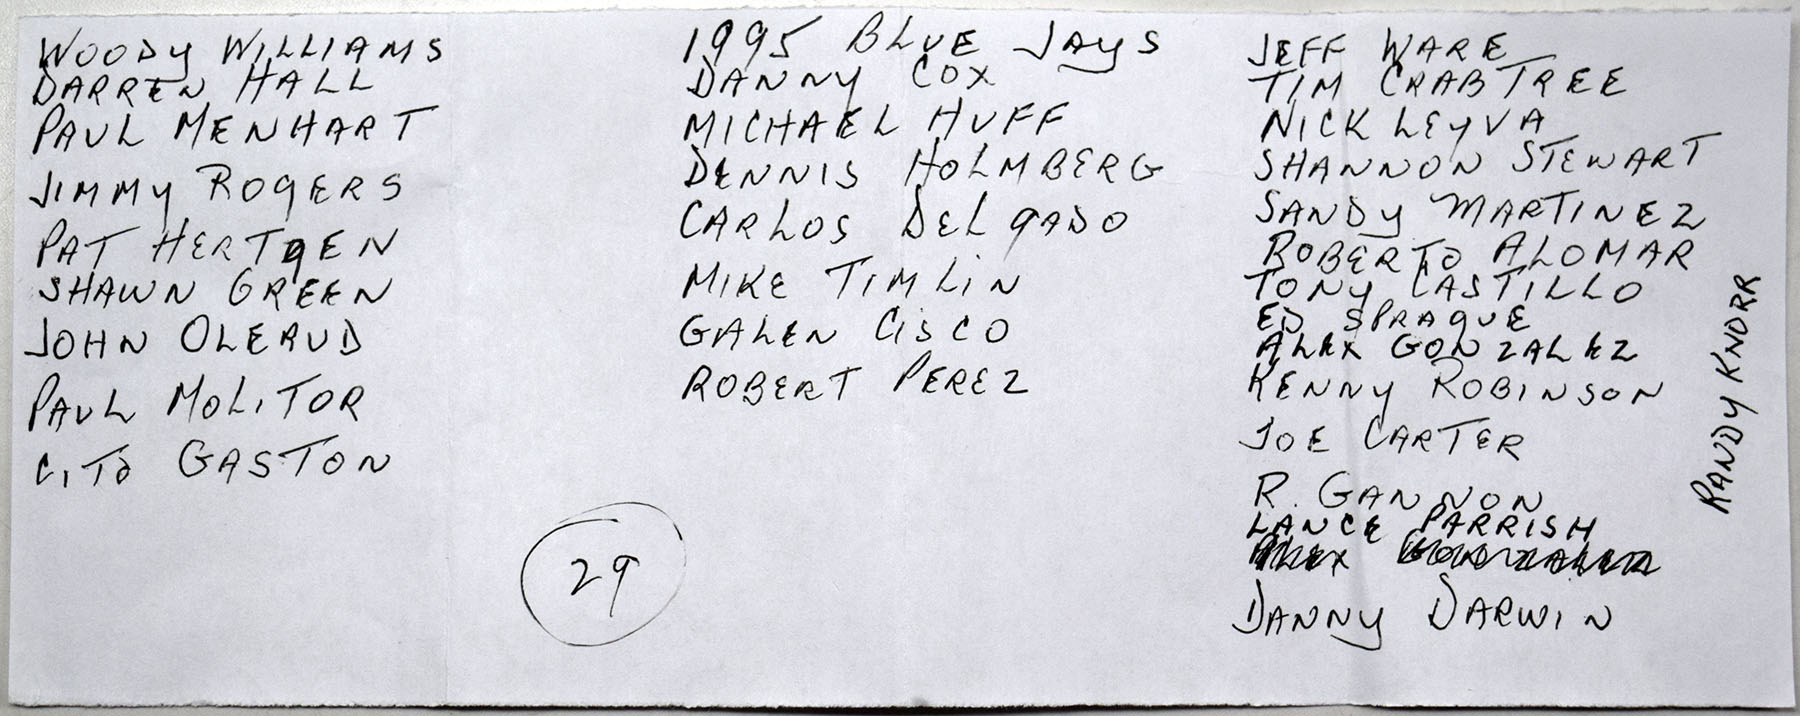 WOODY WILLIAMS
DARREN HALL
PAUL MENHART
JIMMY ROGERS
PAT HERTGEN
SHAWN GREEN
JOHN OLERUD
PAUL MOLITOR
CITO GASTON
1995 BLUE JAYS
DANNY COX
MICHAEL HUFF
DENNIS HOLMBERG
CARLOS DELGADO
MIKE TIMLIN
GALEN CISCO
ROBERT PEREZ
29
JEFF WARE
TIM CRABTREE
NICK LEYVA
SHANNON STEWART
SANDY MARTINEZ
ROBERTO ALOMAR
TONY CASTILLO
ED SPRAGUE
ALEX GONZALEZ
KENNY ROBINSON
JOE CARTER
R. GANNON
LANCE PARRISH
ALEX GONZALEZ
DANNY DARWIN
RANDY KNORR